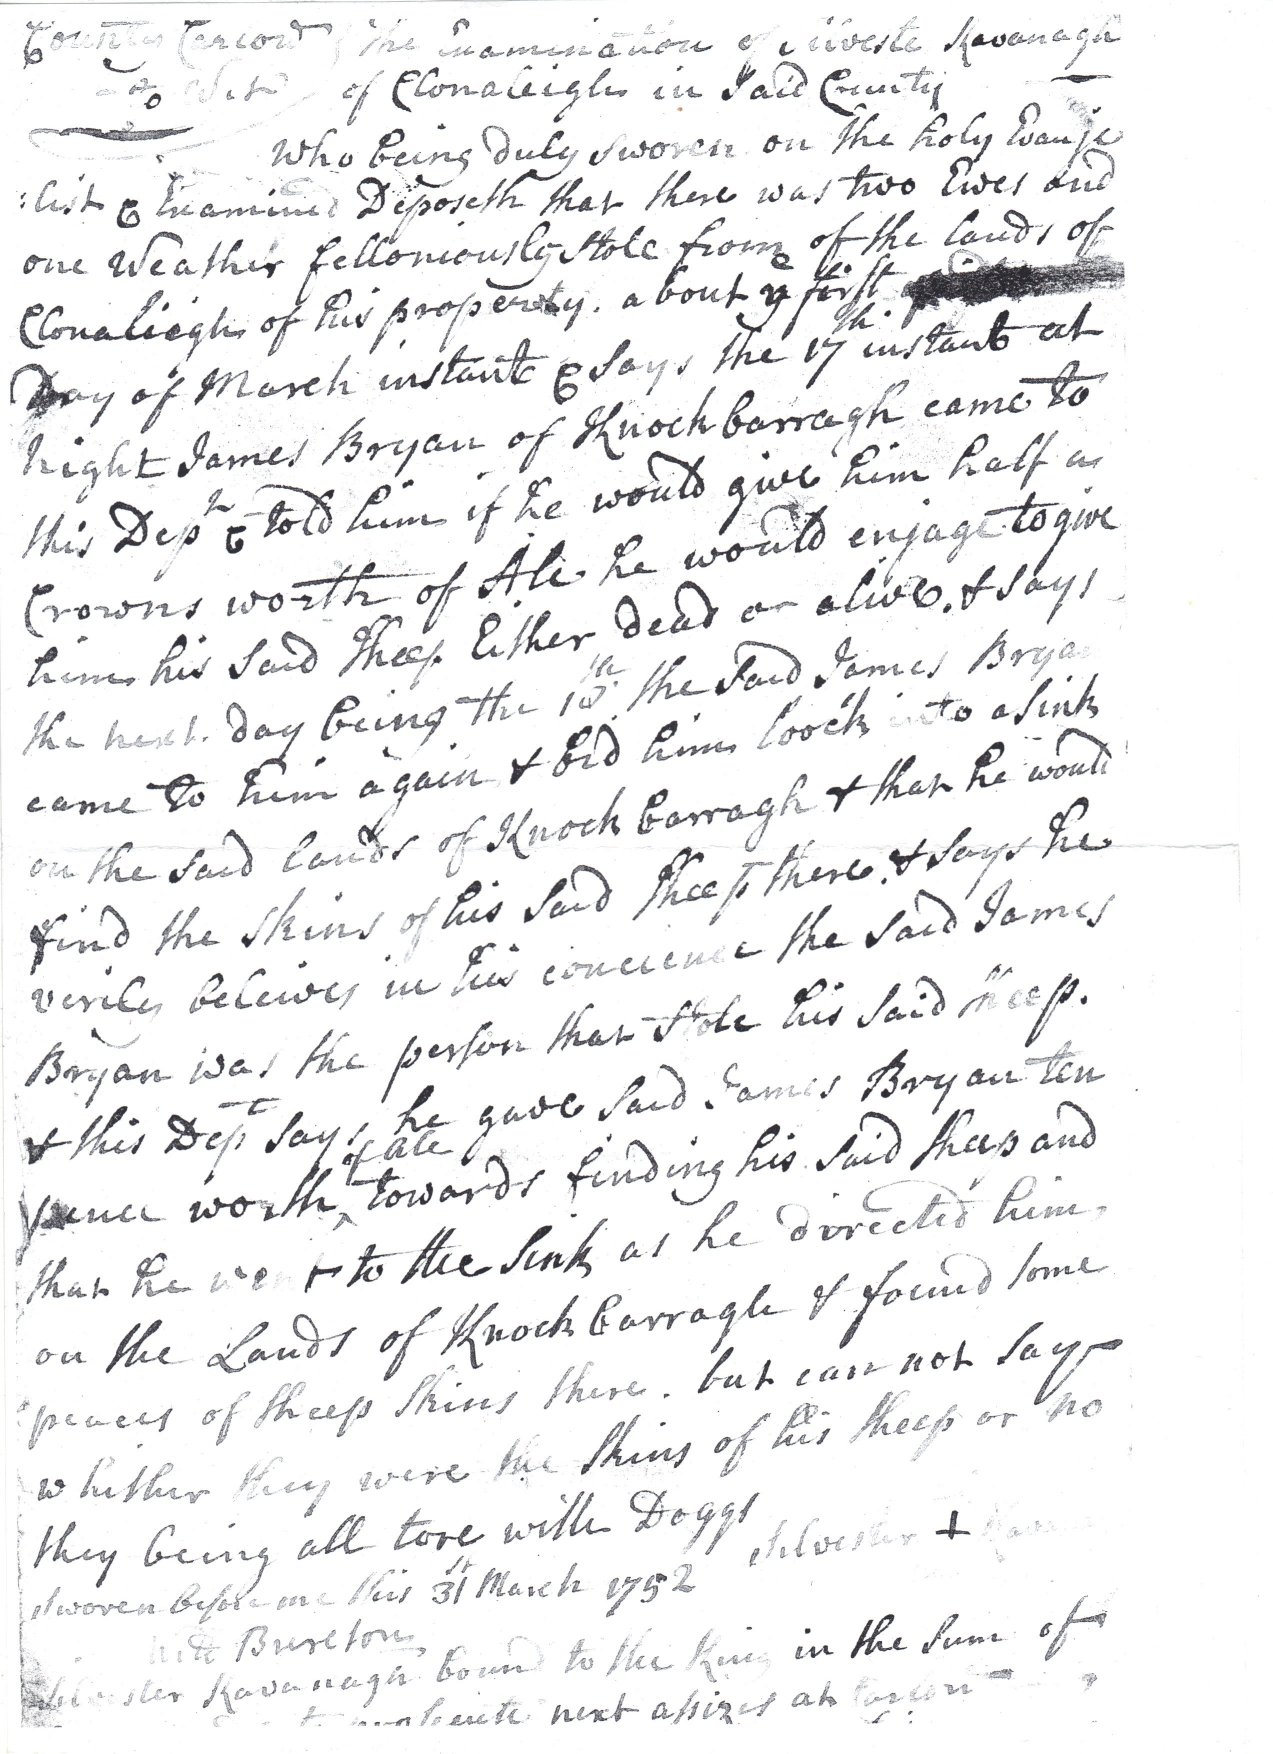 County Carlow } The Examination of Silveste Kavanagh
to Wit } of Clonaleigh in Said County
Who being duly Sworen on the holy Evanje
:list & Examined Deposeth that there was two Ewes and
one Weather felloniously Stole from of the lands of
Clonaliegh of his property. about ye first
Day of March instant & Says the 17th instant at
night James Bryan of Knockbarragh came to
this Depnt & told him if he would give him half a
Crowns worth of Ale he would enjage to give
him his Said Sheep Either dead or alive. & Says
the next day being the 18th the Said James Bryan
came to him again & bid him loock into a Sink
on the Said lands of Knockbarragh & that he would
find the Skins of his Said Sheep there. & Says he
verily beleives in his concience the Said James
Bryan was the person that Stole his Said Sheep.
& this Dept Says he gave Said James Bryan ten
pence worth ^ of ale towards finding his Said Sheep and
that he went to the Sink as he directed him
on the Lands of Knockbarragh & found Some
peaces of Sheep Skins there. but can not Say
whither they were the Skins of his Sheep or no
they being all tore with Doggs
Silvester + Kavana
Sworen before me this 31st March 1752
Brereton
Silvester Kavanagh bound to the King in the Sum of
to prosecute next assizes at